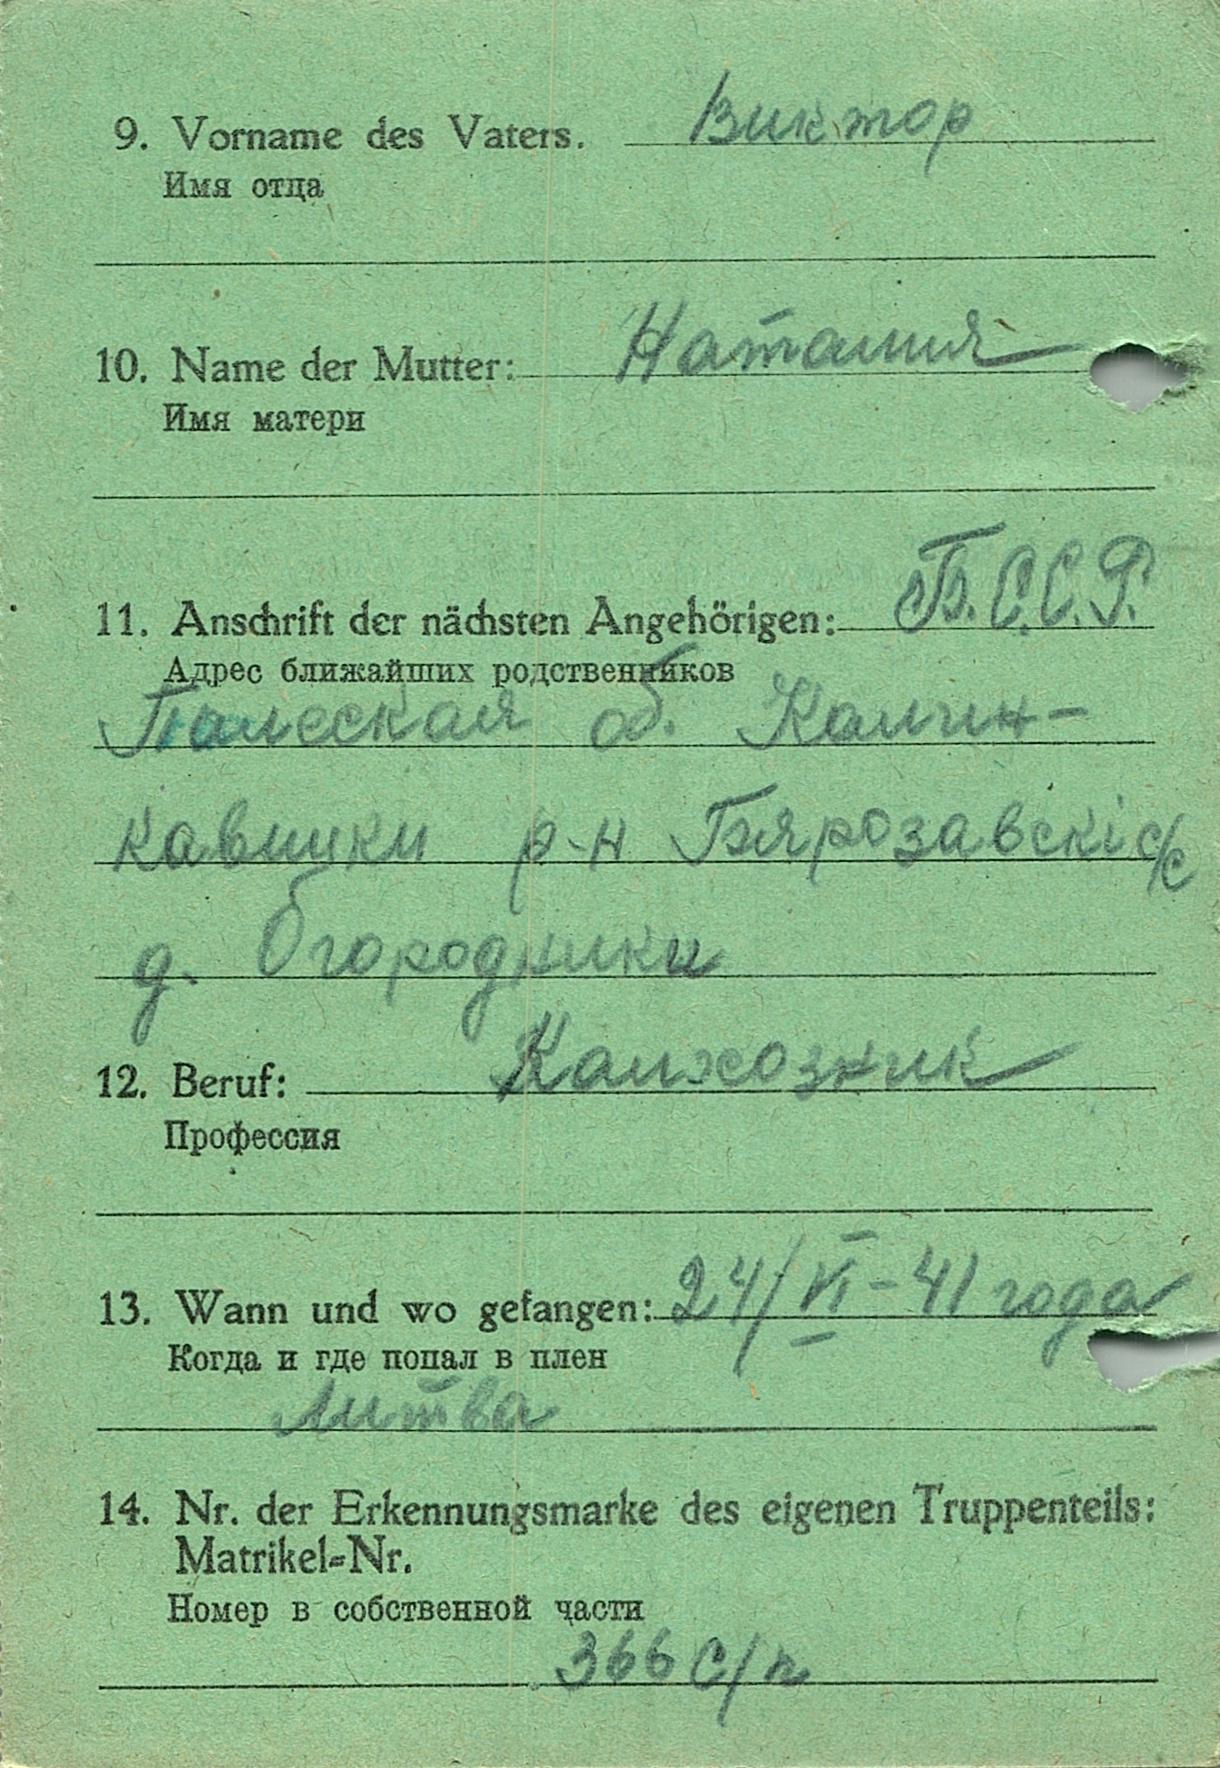 9. Vorname des Vaters. Виктор
Имя отца
10. Name der Mutter: Наталия
Имя матери
11. Anschrift der nächsten Angehörigen: Б.С.С.Р.
Адрес ближайших родственников
Палесская об. Калин-
кавицки р-н Бярозавскі с/с
д. Огородники
12. Beruf: Калхозник
Профессия
13. Wann und wo gefangen: 24/VI-41 года
Когда и где попал в плен
Литва
14. Nr. der Erkennungsmarke des eigenen Truppenteils:
Matrikel-Nr.
Номер в собственной части
366 с/п